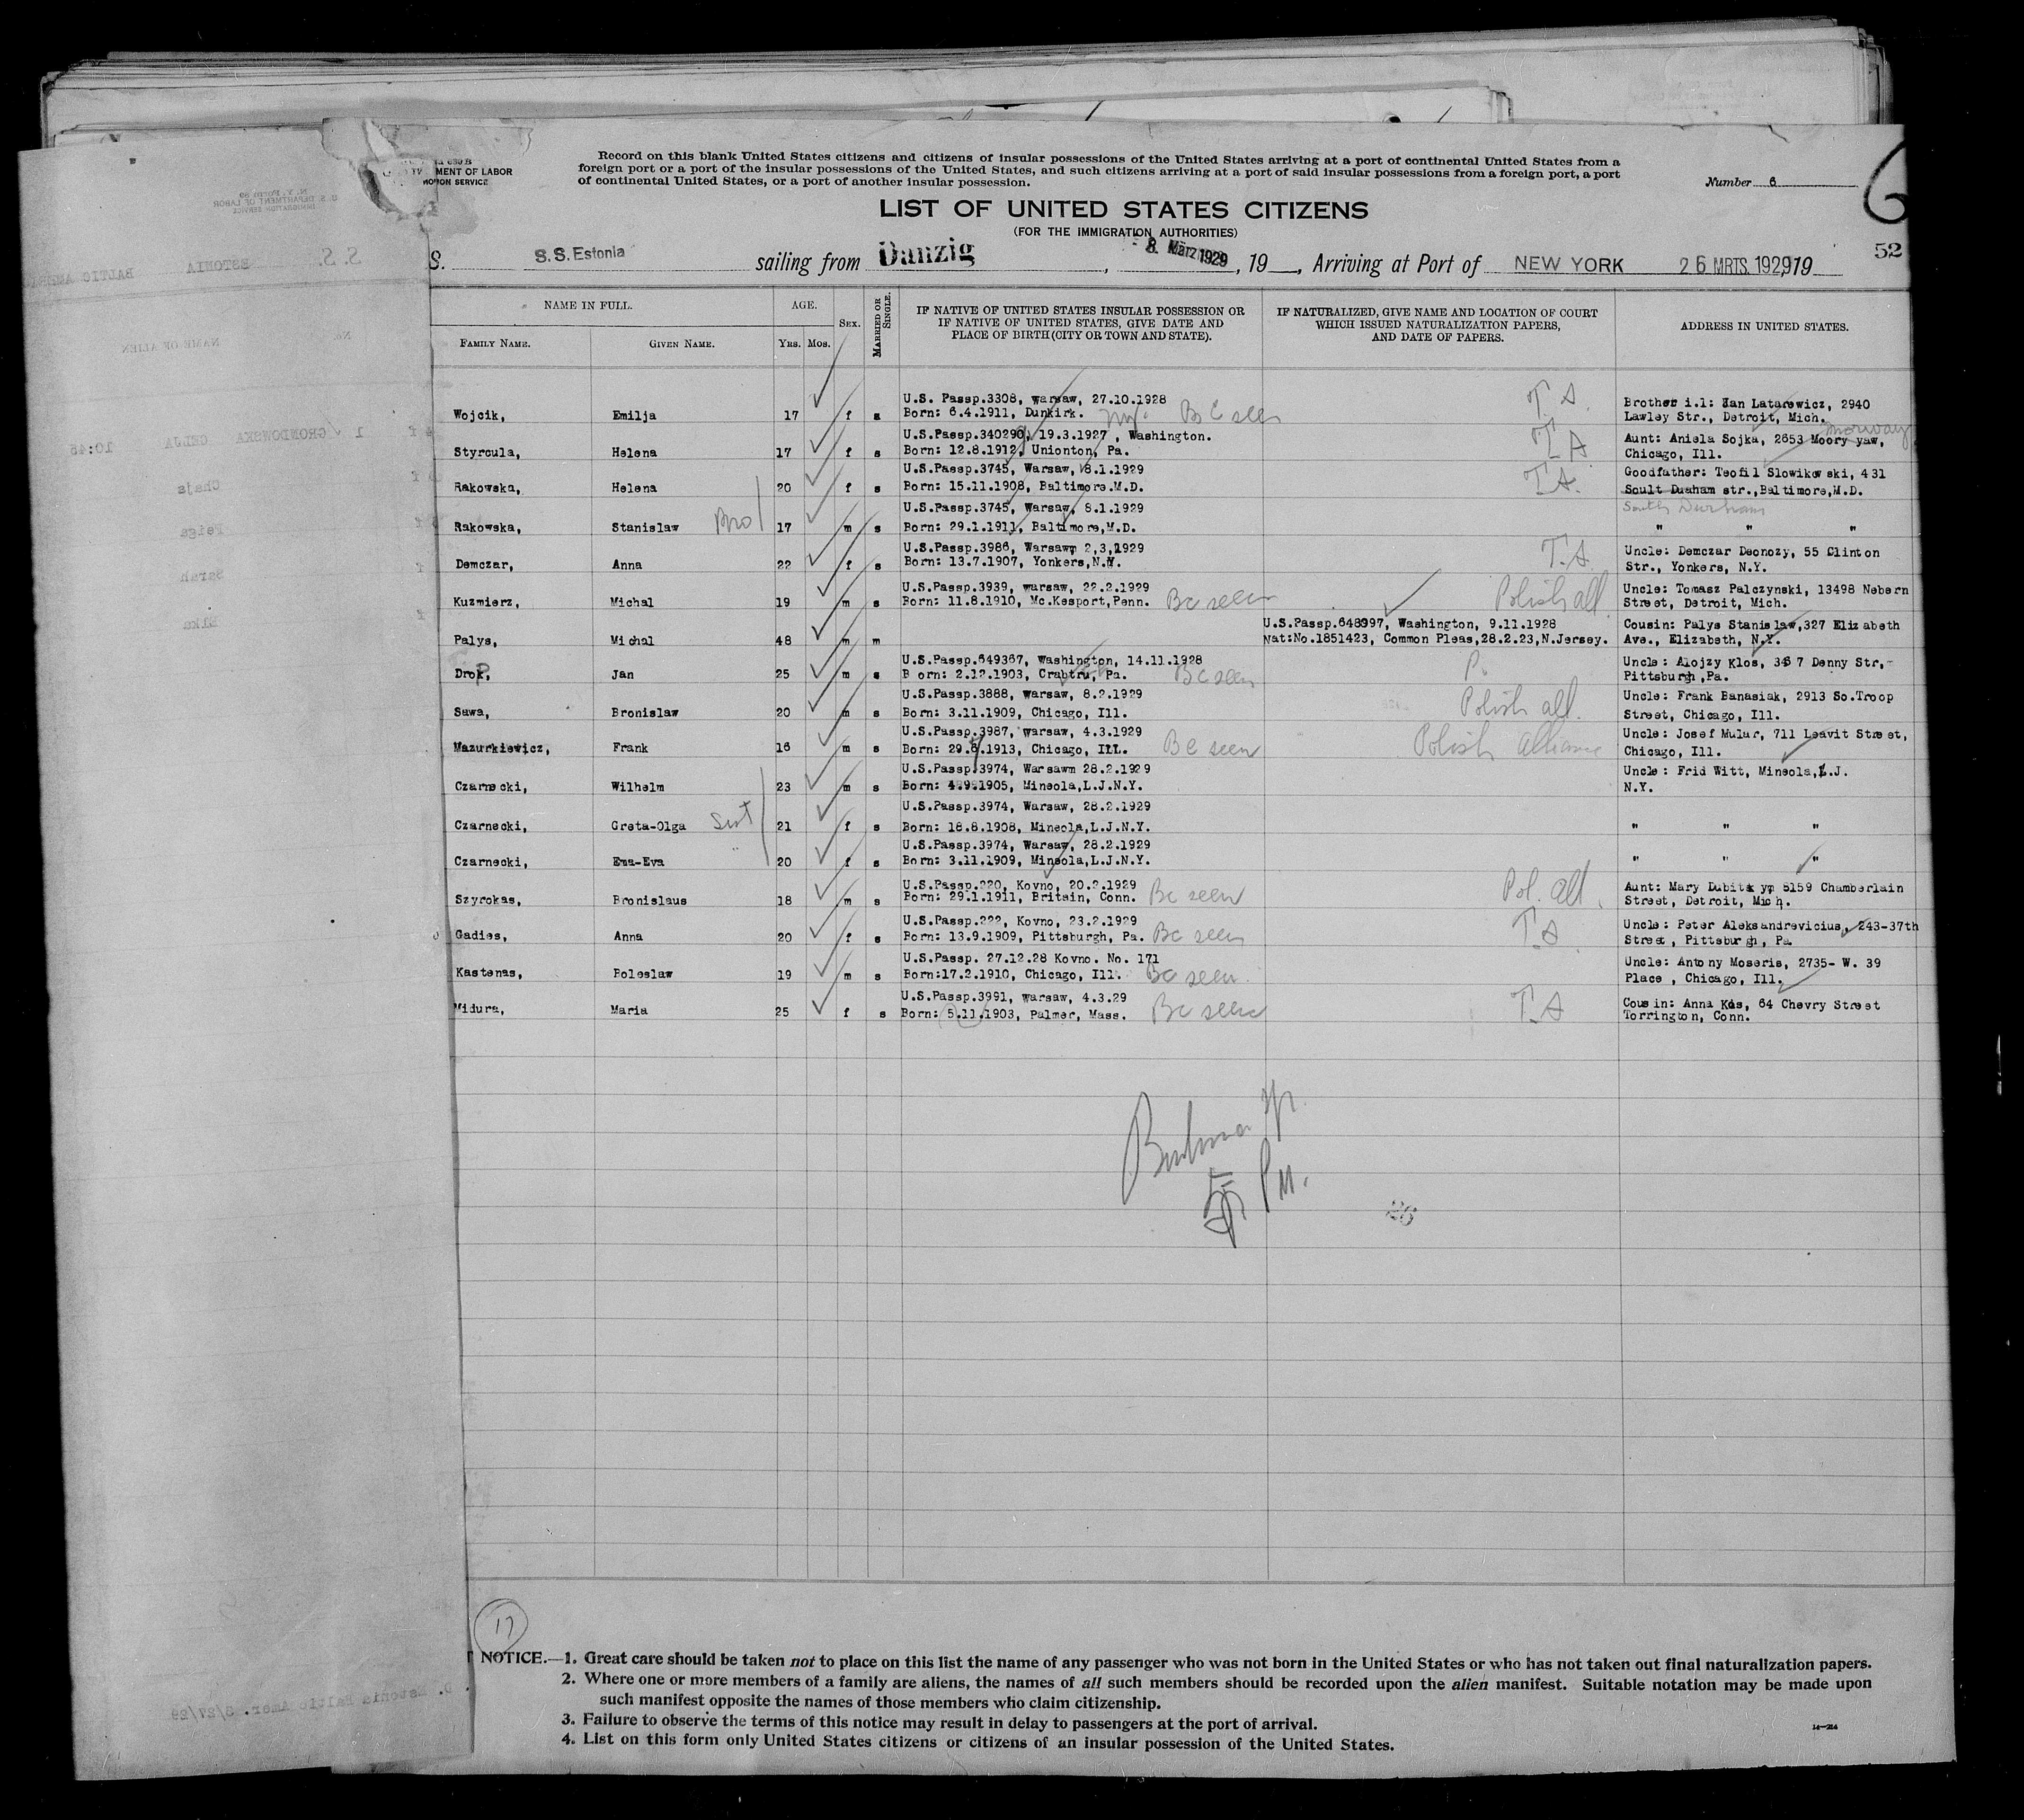 MENT OF LABOR
Record on this blank United States citizens and citizens of insular possessions of the United States arriving at a port of continental United States from a
foreign port or a port of the insular possessions of the United States, and such citizens arriving at a port of said insular possessions from a foreign port, a port
of continental United States, or a port of another insular possession.
Number 6
6
LIST OF UNITED STATES CITIZENS
(FOR THE IMMIGRATION AUTHORITIES)
52
S. S.S. Estonia sailing from Danzig, 8. März 1929, 19__, Arriving at Port of NEW YORK 26 MRTS. 1929 19
NAME IN FULL. AGE. SEX. MARRIED OR SINGLE. IF NATIVE OF UNITED STATES INSULAR POSSESSION OR IF NATIVE OF UNITED STATES, GIVE DATE AND PLACE OF BIRTH (CITY OR TOWN AND STATE). IF NATURALIZED, GIVE NAME AND LOCATION OF COURT WHICH ISSUED NATURALIZATION PAPERS, AND DATE OF PAPERS. ADDRESS IN UNITED STATES.
FAMILY NAME. GIVEN NAME. YRS. MOS.
U.S. Passp.3308, warsaw, 27.10.1928 T A Brother i.l: Jan Latarewicz, 2940
Wojcik, Emilja 17 f s Born: 6.4.1911, Dunkirk. NY. BC seen Lawley Str., Detroit, Mich.
U.S.Passp.340290, 19.3.1927, Washington. T A Aunt: Aniela Sojka, 2653 Moory yaw,
Styrcula, Helena 17 f s Born: 12.8.1912, Unionton, Pa. Chicago, Ill.
U.S.Passp.3745, Warsaw, 8.1.1929 T.A. Goodfather: Teofil Slowikowski, 431
Rakowska, Helena 20 f s Born: 15.11.1908, Baltimore.M.D. Soult Duaham str.,Baltimore,M.D.
U.S.Passp.3745, Warsaw, 8.1.1929 South Durham
Rakowska, Stanislaw Bro 17 m s Born: 29.1.1911, Baltimore,M.D. " " "
U.S.Passp.3986, Warsawm 2,3,1929 T.A Uncle: Demczar Deonozy, 55 Clinton
Demczar, Anna 22 f s Born: 13.7.1907, Yonkers,N.Y. Str., Yonkers, N.Y.
U.S.Passp.3939, warsaw, 22.2.1929 Polish all Uncle: Tomasz Palczynski, 13498 Nebern
Kuzmierz, Michal 19 m s Born: 11.8.1910, Mc.Kesport,Penn. Bc seen Street, Detroit, Mich.
U.S.Passp.648997, Washington, 9.11.1928 Cousin: Palys Stanislaw,327 Elizabeth
Palys, Michal 48 m m Nat:No.1851423, Common Pleas,28.2.23,N.Jersey. Ave., Elizabeth, N.Y.
U.S.Passp.649367, Washington, 14.11.1928 P. Uncle: Alojzy Klos, 3437 Denny Str,-
Drop, Jan 25 m s B orn: 2.12.1903, Crabtru, Pa. BC seen Pittsburgh,Pa.
U.S.Passp.3888, warsaw, 8.2.1929 Uncle: Frank Banasiak, 2913 So.Troop
Sawa, Bronislaw 20 m s Born: 3.11.1909, Chicago, Ill. Polish all. Street, Chicago, Ill.
U.S.Passp.3987, warsaw, 4.3.1929 Uncle: Josef Mular, 711 Leavit Street,
Mazurkiewicz, Frank 16 m s Born: 29.8.1913, Chicago, Ill. BC seen Polish Alliance Chicago, Ill.
U.S.Passp.3974, Warsawm 28.2.1929 Uncle: Frid Witt, Mineola,L.J.
Czarnecki, Wilhelm 23 m s Born: 4.9.1905, Mineola,L.J.N.Y. N.Y.
U.S.Passp.3974, Warsaw, 28.2.1929
Czarnecki, Greta-Olga Sist 21 f s Born: 18.8.1908, Mineola,L.J.N.Y. " " "
U.S.Passp.3974, Warsaw, 28.2.1929
Czarnecki, Ema-Eva 20 f s Born: 3.11.1909, Mineola,L.J.N.Y. " " "
U.S.Passp.220, Kovno, 20.2.1929 Pol. all. Aunt: Mary Dubitskym 5159 Chamberlain
Szyrokas, Bronislaus 18 m s Born: 29.1.1911, Britain, Conn. Bc seen Street, Detroit, Mich.
U.S.Passp.222, Kovno, 23.2.1929 T.A Uncle: Peter Aleksandrevicius, 243-37th
Gadies, Anna 20 f s Born: 13.9.1909, Pittsburgh, Pa. BC seen Street, Pittsburgh, Pa
U.S.Passp. 27.12.28 Kovno. No. 171 Uncle: Antony Moseris, 2735- W. 39
Kastenas, Boleslaw 19 m s Born:17.2.1910, Chicago, Ill. Bc seen. Place, Chicago, Ill.
U.S.Passp.3991, warsaw, 4.3.29 T.A Cousin: Anna Kos, 64 Chevry Street
Midura, Maria 25 f s Born: 5.11.1903, Palmer, Mass. BC seen Torrington, Conn.
26
17
NOTICE.—1. Great care should be taken not to place on this list the name of any passenger who was not born in the United States or who has not taken out final naturalization papers.
2. Where one or more members of a family are aliens, the names of all such members should be recorded upon the alien manifest. Suitable notation may be made upon
such manifest opposite the names of those members who claim citizenship.
3. Failure to observe the terms of this notice may result in delay to passengers at the port of arrival.
4. List on this form only United States citizens or citizens of an insular possession of the United States.